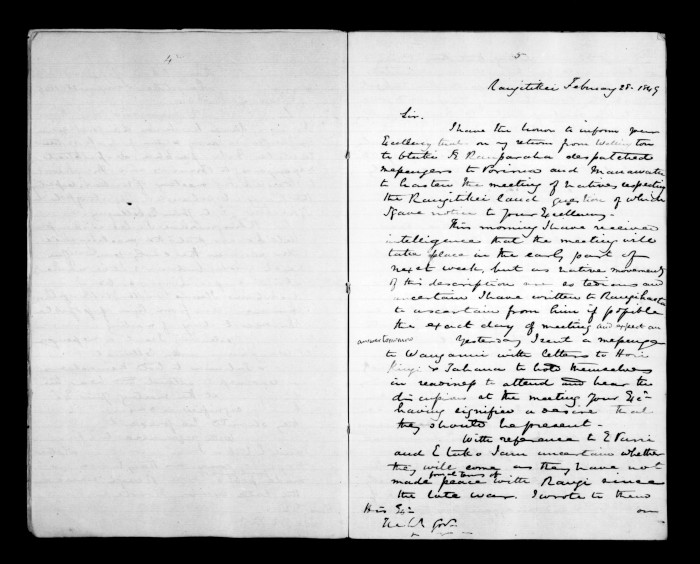 4
5
Rangitikei February 28. 1849
Sir.
I have the honor to inform your
Excellency that on my return from Wellington
to Otaki Te Rauparaha despatched
messengers to Porirua and Manawatu
to hasten the meeting of natives respecting
the Rangitikei land question of which
I gave notice to Your Excellency.
This morning I have received
intelligence that the meeting will
take place in the early part of
next week, but as native movements
of this description are so tedious and
uncertain I have written to Rangihaeata
to ascertain from him if possible
the exact day of meeting and expect an
answer tomorrow
Yesterday I sent a messenger
to Wanganui with letters to Hori
Kingi & Tahana to hold themselves
in readiness to attend and hear the
discussion at the meeting Your Exc
having signified a desire that
they should be present.
With reference to E
and E I am uncertain whether
they will come as they have not
made peace with Rangi since
the late war. I wrote to them
on
His Exc
The Lt Gov